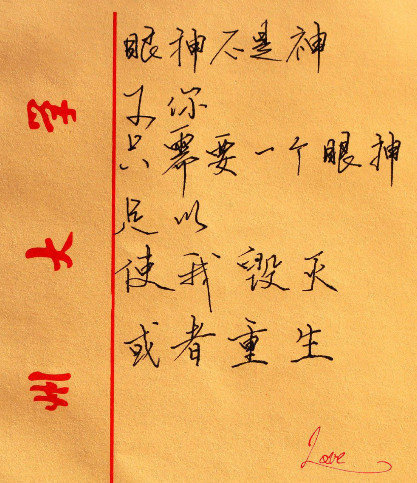 眼神不是神
你
只需要一个眼神
足以
使我毁灭
或者重生
大州
Love